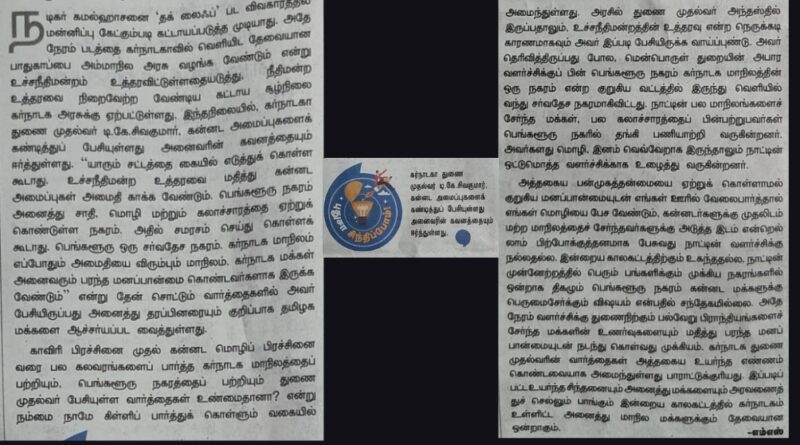 நடிகர் கமல்ஹாசனை 'தக் லைஃப்' பட விவகாரத்தில்
மன்னிப்பு கேட்கும்படி கட்டாயப்படுத்த முடியாது. அதே
நேரம் படத்தை கர்நாடகாவில் வெளியிட தேவையான
பாதுகாப்பை அம்மாநில அரசு வழங்க வேண்டும் என்று
உச்சநீதிமன்றம் உத்தரவிட்டுள்ளதையடுத்து, நீதிமன்ற
உத்தரவை நிறைவேற்ற வேண்டிய கட்டாய சூழ்நிலை
கர்நாடக அரசுக்கு ஏற்பட்டுள்ளது. இந்தநிலையில், கர்நாடகா
துணை முதல்வர் டி.கே.சிவகுமார், கன்னட அமைப்புகளைக்
கண்டித்துப் பேசியுள்ளது அனைவரின் கவனத்தையும்
ஈர்த்துள்ளது. "யாரும் சட்டத்தை கையில் எடுத்துக் கொள்ள
கூடாது. உச்சநீதிமன்ற உத்தரவை மதித்து கன்னட
அமைப்புகள் அமைதி காக்க வேண்டும். பெங்களூரு நகரம்
அனைத்து சாதி, மொழி மற்றும் கலாச்சாரத்தை ஏற்றுக்
கொண்டுள்ள நகரம். அதில் சமரசம் செய்து கொள்ளக்
கூடாது. பெங்களூரு ஒரு சர்வதேச நகரம். கர்நாடக மாநிலம்
எப்போதும் அமைதியை விரும்பும் மாநிலம். கர்நாடக மக்கள்
அனைவரும் பரந்த மனப்பான்மை கொண்டவர்களாக இருக்க
வேண்டும்" என்று தேன் சொட்டும் வார்த்தைகளில் அவர்
பேசியிருப்பது அனைத்து தரப்பினரையும் குறிப்பாக தமிழக
மக்களை ஆச்சர்யப்பட வைத்துள்ளது.
காவிரி பிரச்சினை முதல் கன்னட மொழிப் பிரச்சினை
வரை பல கலவரங்களைப் பார்த்த கர்நாடக மாநிலத்தைப்
பற்றியும், பெங்களூரு நகரத்தைப் பற்றியும் துணை
முதல்வர் பேசியுள்ள வார்த்தைகள் உண்மைதானா? என்று
நம்மை நாமே கிள்ளிப் பார்த்துக் கொள்ளும் வகையில்
புதுசா சிந்திப்போம்!
கர்நாடகா துணை
முதல்வர் டி.கே.சிவகுமார்,
கன்னட அமைப்புகளைக்
கண்டித்துப் பேசியுள்ளது
அனைவரின் கவனத்தையும்
ஈர்த்துள்ளது.
அமைந்துள்ளது. அரசில் துணை முதல்வர் அந்தஸ்தில்
இருப்பதாலும், உச்சநீதிமன்றத்தின் உத்தரவு என்ற நெருக்கடி
காரணமாகவும் அவர் இப்படி பேசியிருக்க வாய்ப்புண்டு. அவர்
தெரிவித்திருப்பது போல, மென்பொருள் துறையின் அபார
வளர்ச்சிக்குப் பின் பெங்களூரு நகரம் கர்நாடக மாநிலத்தின்
ஒரு நகரம் என்ற குறுகிய வட்டத்தில் இருந்து வெளியில்
வந்து சர்வதேச நகரமாகிவிட்டது. நாட்டின் பல மாநிலங்களைச்
சேர்ந்த மக்கள், பல கலாச்சாரத்தைப் பின்பற்றுபவர்கள்
பெங்களூரு நகரில் தங்கி பணியாற்றி வருகின்றனர்.
அவர்களது மொழி, இனம் வெவ்வேறாக இருந்தாலும் நாட்டின்
ஒட்டுமொத்த வளர்ச்சிக்காக உழைத்து வருகின்றனர்.
அத்தகைய பன்முகத்தன்மையை ஏற்றுக் கொள்ளாமல்
குறுகிய மனப்பான்மையுடன் எங்கள் ஊரில் வேலைபார்த்தால்
எங்கள் மொழியை பேச வேண்டும், கன்னடர்களுக்கு முதலிடம்
மற்ற மாநிலத்தைச் சேர்ந்தவர்களுக்கு அடுத்த இடம் என்றெல்
லாம் பிற்போக்குத்தனமாக பேசுவது நாட்டின் வளர்ச்சிக்கு
நல்லதல்ல. இன்றைய காலகட்டத்திற்கும் உகந்ததல்ல. நாட்டின்
முன்னேற்றத்தில் பெரும் பங்களிக்கும் முக்கிய நகரங்களில்
ஒன்றாக திகழும் பெங்களூரு நகரம் கன்னட மக்களுக்கு
பெருமைசேர்க்கும் விஷயம் என்பதில் சந்தேகமில்லை. அதே
நேரம் வளர்ச்சிக்கு துணைநிற்கும் பல்வேறு பிராந்தியங்களைச்
சேர்ந்த மக்களின் உணர்வுகளையும் மதித்து பரந்த மனப்
பான்மையுடன் நடந்து கொள்வது முக்கியம். கர்நாடக துணை
முதல்வரின் வார்த்தைகள் அத்தகைய உயர்ந்த எண்ணம்
கொண்டவையாக அமைந்துள்ளது பாராட்டுக்குரியது. இப்படிப்
பட்ட உயர்ந்த சிந்தனையும் அனைத்து மக்களையும் அரவணைத்
துச் செல்லும் பாங்கும் இன்றைய காலகட்டத்தில் கர்நாடகம்
உள்ளிட்ட அனைத்து மாநில மக்களுக்கும் தேவையான
ஒன்றாகும். -எம்எஸ்